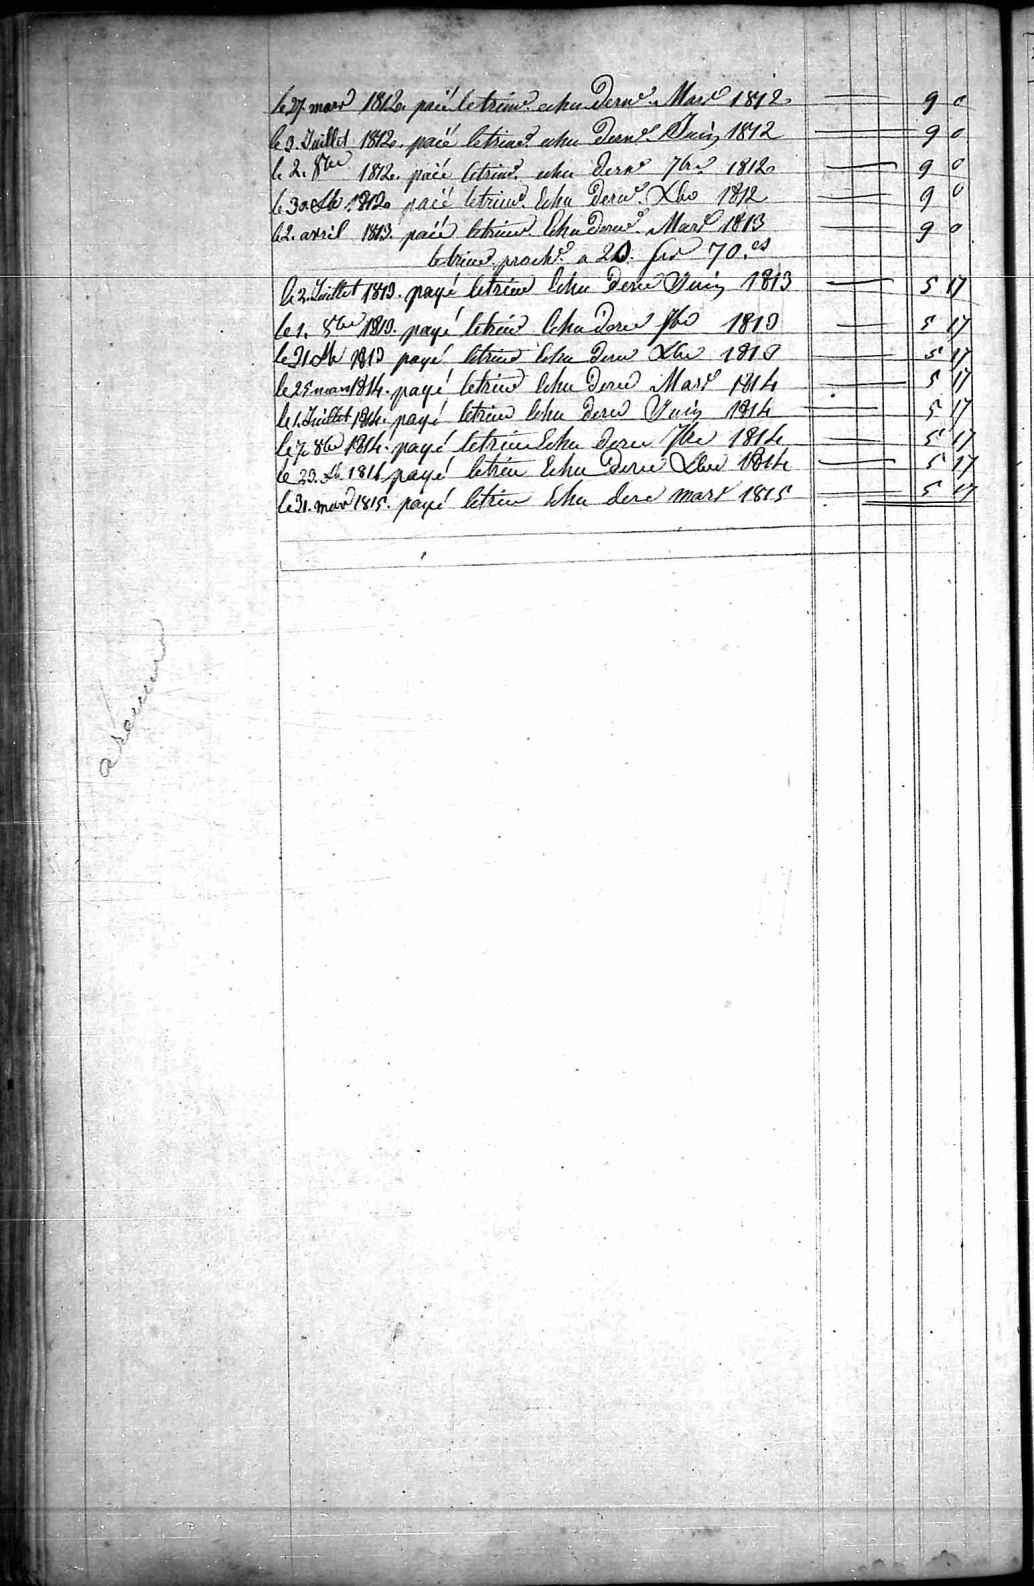 le 27. mars 1812. paié le trim.e echu dern.r Mars 1812. 9 0
le 3. Juillet 1812. paié le trim.e echu dern.r Juin 1812 9 0
le 2. 8bre 1812. paié le trim.e echu dern.r 7bre 1812 9 0
le 30 Xbre 1812 paié le trim.e Echu dern.r Xbre 1812 9 0
le 2. avril 1813. paié le trime Echu dern.r Mars 1813 9 0
le trime proch.n a 20. frs 70.cs
le 2. Juillet 1813. payé le trim Echu dere Juin 1813 5 17
le 1. 8bre 1813. payé le trim Echu dere 7bre 1813 5 17
le 31 Xbre 1813 payé le trim Echu dere Xbre 1813 5 17
le 25 mars 1814. payé le trim Echu dere Mars 1814 5 17
le 1. Juillet 1814. payé le trim Echu dere Juin 1814 5 17
le 7 8bre 1814. payé le trim Echu dere 7bre 1814 5 17
le 23. Xb. 1814 payé le trim Echu dere Xbre 1814 5 17
le 31. mars 1815. payé le trim Echu dere mars 1815 5 17